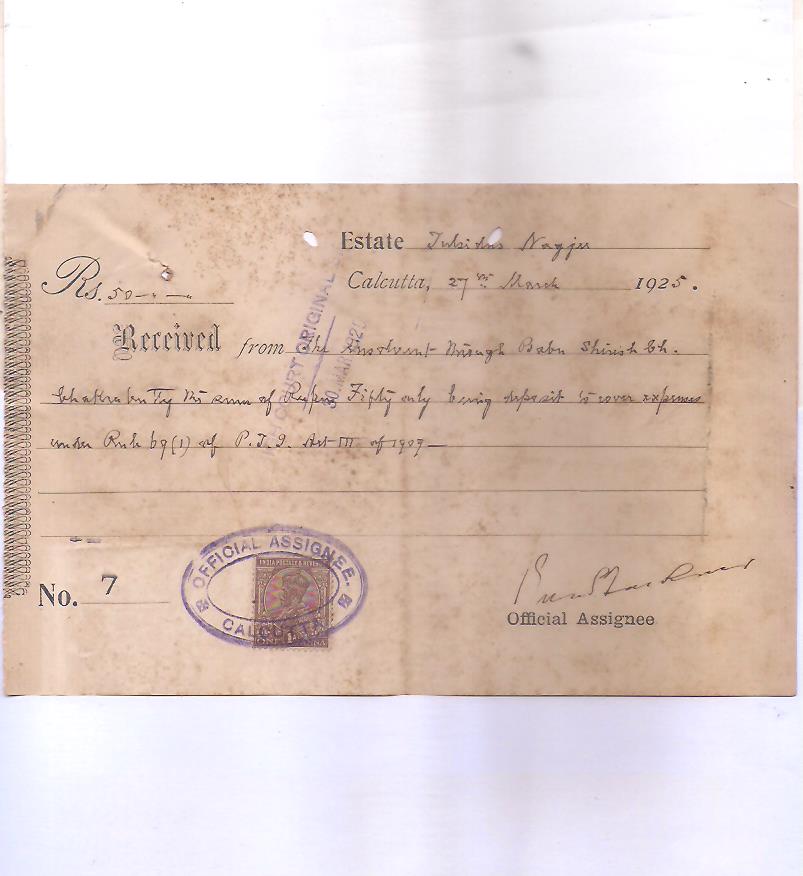 Estate Tulsidas Nagji
Rs. 50-"-"-
Calcutta, 27th March 1925.
Received from the insolvent through Babu Shirish Ch.
Chakrabutty the sum of Rupees Fifty only being deposit to cover expenses
under Rule 69(1) of P.T.I. Act III of 1909—
COURT ORIGINAL
30 MAR 192
OFFICIAL ASSIGNEE.
CALCUTTA
INDIA POSTAGE & REVENUE
1A
ONE ANNA
No. 7
Official Assignee